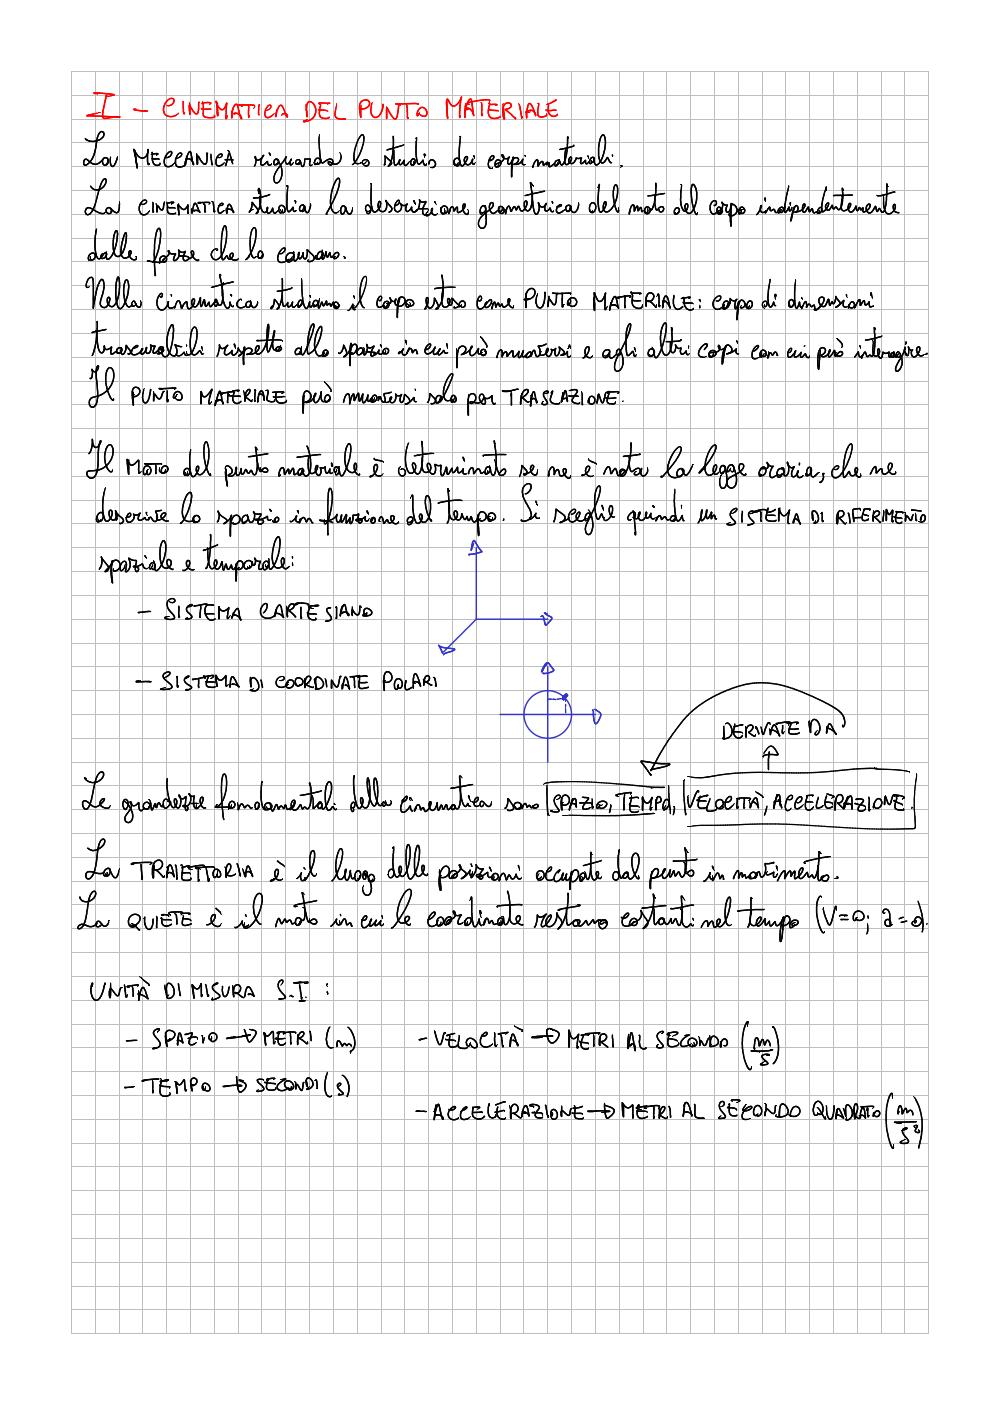 I - CINEMATICA DEL PUNTO MATERIALE
La MECCANICA riguarda lo studio dei corpi materiali.
La CINEMATICA studia la descrizione geometrica del moto del corpo indipendentemente
dalle forze che lo causano.
Nella cinematica studiamo il corpo esteso come PUNTO MATERIALE: corpo di dimensioni
trascurabili rispetto allo spazio in cui può muoversi e agli altri corpi con cui può interagire
Il PUNTO MATERIALE può muoversi solo per TRASLAZIONE.
Il MOTO del punto materiale è determinato se ne è nota la legge oraria, che ne
descrive lo spazio in funzione del tempo. Si sceglie quindi un SISTEMA DI RIFERIMENTO
spaziale e temporale:
- SISTEMA CARTESIANO
- SISTEMA DI COORDINATE POLARI
DERIVATE DA
Le grandezze fondamentali della cinematica sono SPAZIO, TEMPO, VELOCITÀ, ACCELERAZIONE.
La TRAIETTORIA è il luogo delle posizioni occupate dal punto in movimento.
La QUIETE è il moto in cui le coordinate restano costanti nel tempo (V=0; a=0).
UNITÀ DI MISURA S.I :
- SPAZIO → METRI (m) - VELOCITÀ → METRI AL SECONDO (m/s)
- TEMPO → SECONDI (s)
- ACCELERAZIONE → METRI AL SECONDO QUADRATO (m/s²)